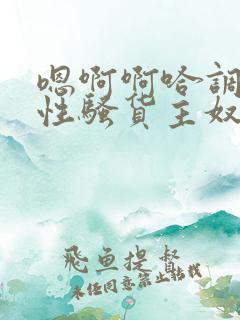 嗯啊啊哈調
性騷貨主奴
飛魚提督
未经同意禁止转载